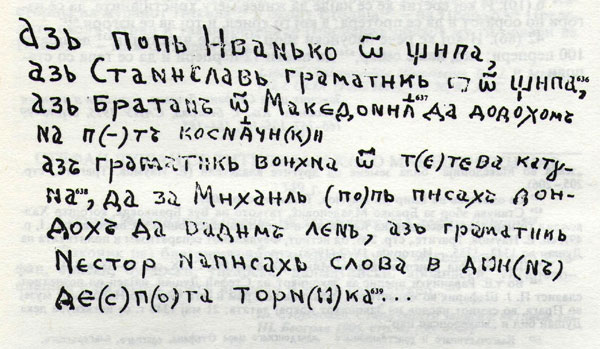 Азь попь Иванько ѿ щипа,
азь Станиславь граматикь ѿ щипа,⁶³⁶
азь Братанъ ѿ Македониѧ⁶³⁷ да додохомъ
на п(-)тъ
азъ граматикь воихна ѿ т(е)тева кату-
на⁶³⁸, да за Михаиль (по)пь писахъ дои-
дохъ да вадимъ лень, азь граматик
Нестор написахь слова в дѡн(нъ)
де(с)п(о)та торн(и)ка⁶³⁹...